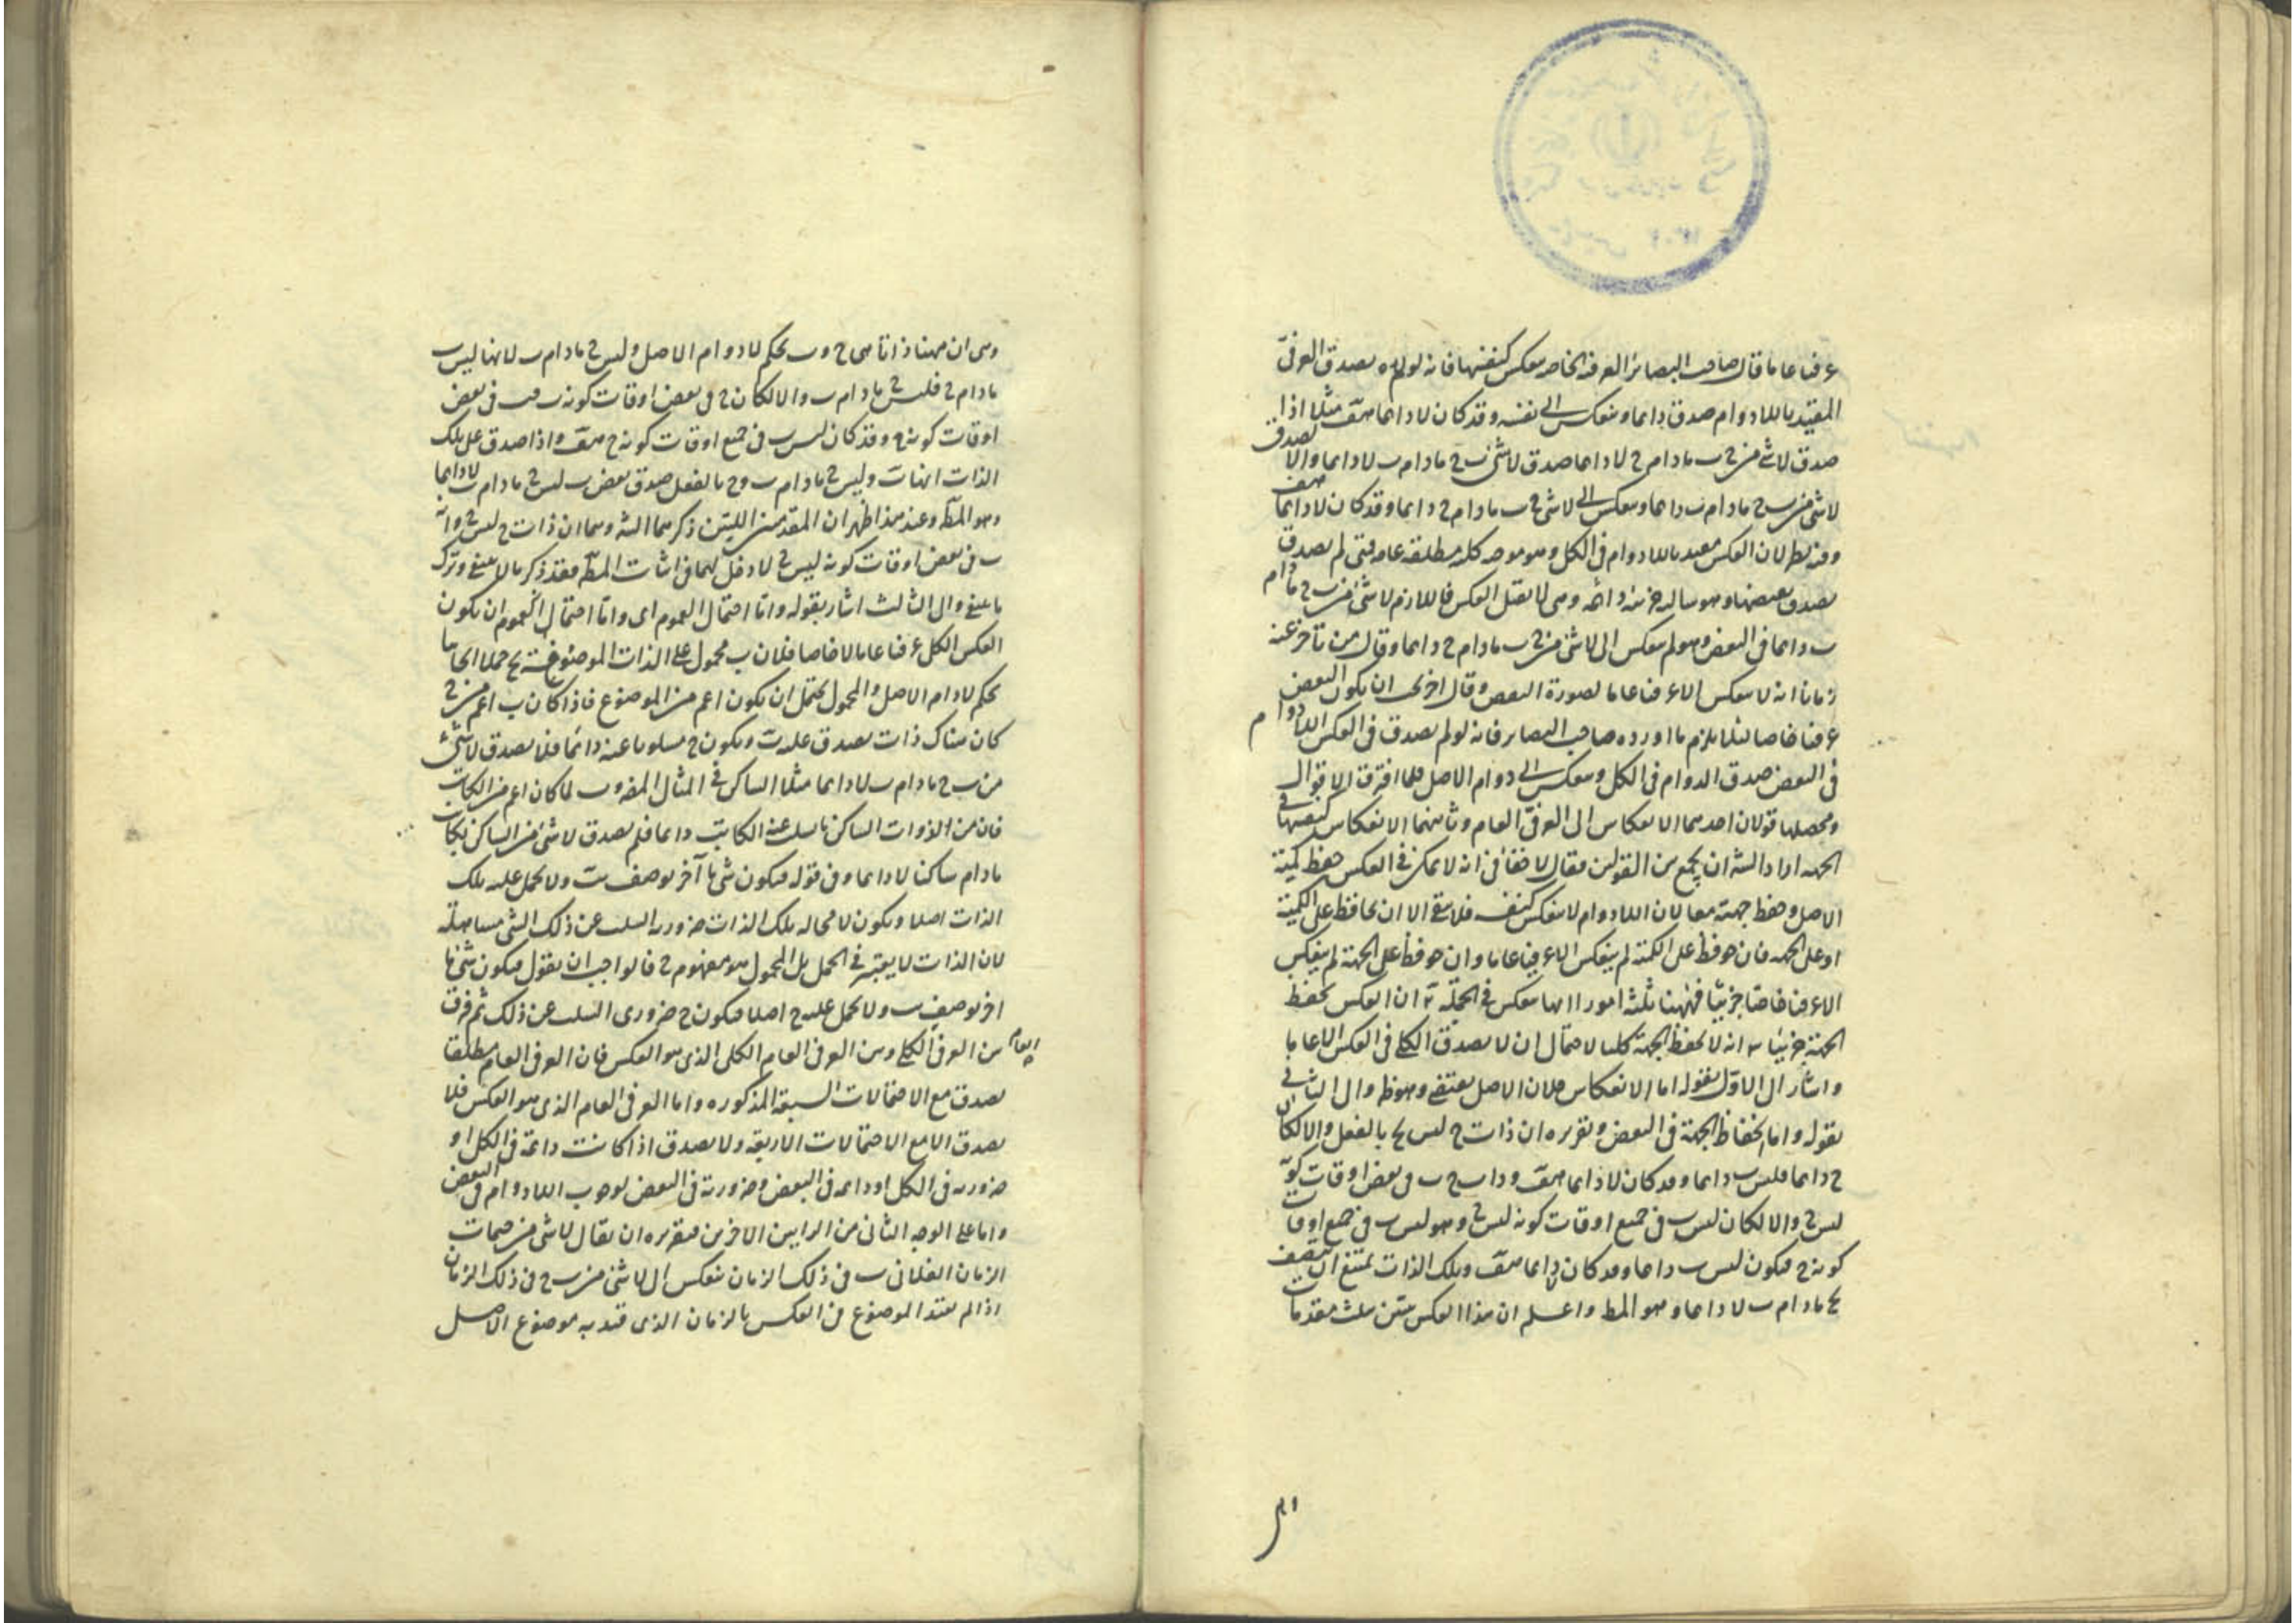 عرفيا عاما قال صاحب البصائر العرفية الخاصة تنعكس كنفسها فانه لو لم يصدق العرفي
المقيد باللادوام صدق دائما وينعكس الى نفسه وقد كان لا دائما هف مثلا اذا
صدق لا شئ من ج ب مادام ج لا دائما صدق لا شئ من ب ج مادام ب لا دائما والا لصدق
لا شئ من ب ج مادام ب دائما وينعكس الى لا شئ من ج ب مادام ج دائما وقد كان لا دائما هف
وفيه نظر لان العكس مقيد باللادوام في الكل وهو موجبة كلية مطلقة عامة فمتى لم يصدق
يصدق نقيضها وهو سالبة جزئية دائمة وهى لا تقبل العكس فاللازم لا شئ من ب ج مادام
ب دائما في البعض وهو لم ينعكس الى لا شئ من ج ب مادام ج دائما وقال من تأخر عنه
زمانا انه لا ينعكس الا عرفيا عاما لصورة النقض وقال اخر يجب ان يكون البعض
عرفيا خاصا لئلا يلزم ما اورده صاحب البصائر فانه لو لم يصدق في العكس اللادوام
في البعض صدق الدوام في الكل وينعكس الى دوام الاصل فلما افترقت الاقوال
ومحصلها قولان احدهما الانعكاس الى العرفي العام وثانيهما الانعكاس كنفسها في
الجهة اراد الشيخ ان يجمع بين القولين فقال لا خفاء في انه لا يمكن في العكس حفظ كمية
الاصل وحفظ جهته معا لان اللادوام لا ينعكس كنفسه فلا بقى الا ان يحافظ على الكمية
او على الجهة فان حوفظ على الكمية لم ينعكس الا عرفيا عاما وان حوفظ على الجهة لم ينعكس
الا عرفيا خاصا جزئيا فههنا ثلثة امور ا انها تنعكس في الجملة ب ان العكس يحفظ
الجهة جزئيا ج انه لا يحفظ الجهة كليا لاحتمال ان لا يصدق الكلى في العكس الا عاما
واشار الى الاول بقوله اما الانعكاس فلان الاصل يقتضى وهو ظ والى الثانى
بقوله واما انحفاظ الجهة في البعض وتقريره ان ذات ج ليس ج بالفعل والا لكان
ج دائما فليس ب دائما وقد كان لا دائما هف وذات ج ب في بعض اوقات كونه
ليس ج والا لكان ليس ب في جميع اوقات كونه ليس ج وهو ليس ب في جميع اوقات
كونه ج فيكون ليس ب دائما وقد كان لا دائما هف وتلك الذات يمتنع ان يتصف
بج مادام ب لا دائما وهو المط واعلم ان هذا العكس يتبين بثلث مقدمات
وهى ان ههنا ذاتا هى ج وب بحكم لادوام الاصل وليس ج مادام ب لانها ليس ب
مادام ج فليس ج مادام ب والا لكان ج في بعض اوقات كونه ب فب في بعض
اوقات كونه ج وقد كان ليس ب في جميع اوقات كونه ج هف واذا صدق على تلك
الذات انها ب وليس ج مادام ب وج بالفعل صدق بعض ب ليس ج مادام ب لا دائما
وهو المط وعند هذا ظهر ان المقدمتين اللتين ذكرهما الشيخ وهما ان ذات ج ليس ج وانه
ب في بعض اوقات كونه ليس ج لا دخل لهما في اثبات المط فقد ذكر ما لا يعنى وترك
ما يعنى والى الثالث اشار بقوله واما احتمال العموم اى واما احتمال العموم ان يكون
العكس الكلى عرفيا عاما لا خاصا فلان ب محمول على الذات الموضوعة لج حملا ايجابيا
بحكم لادوام الاصل والمحمول يحتمل ان يكون اعم من الموضوع فاذا كان ب اعم من ج
كان هناك ذات يصدق عليه ب ويكون ج مسلوبا عنه دائما فلا يصدق لا شئ
من ب ج مادام ب لا دائما مثلا الساكن في المثال المضروب لما كان اعم من الكاتب
فان من الذوات الساكن ما يسلب عنه الكاتب دائما فلم يصدق لا شئ من الساكن بكاتب
مادام ساكنا لا دائما وفي قوله فيكون شيئا آخر يوصف بب ولا يحمل عليه تلك
الذات اصلا ويكون لا محالة تلك الذات ضرورية السلب عن ذلك الشئ مساهلة
لان الذات لا يعتبر في الحمل بل المحمول هو مفهوم ج فالواجب ان يقول فيكون شيئا
اخر يوصف بب ولا يحمل عليه ج اصلا فيكون ج ضرورى السلب عن ذلك ثم فرق
بين العرفي العام الكلى وبين العرفي العام الكلى الذى هو العكس فان العرفي العام مطلقا
يصدق مع الاحتمالات السبعة المذكورة واما العرفي العام الذى هو العكس فلا
يصدق الا مع الاحتمالات الاربعة ولا يصدق اذا كانت دائمة في الكل او
ضرورية في الكل او دائمة في البعض وضرورية في البعض لوجوب اللادوام في البعض
واما على الوجه الثانى من الرايين الاخرين فتقريره ان يقال لا شئ من جيمات
الزمان الفلانى ب في ذلك الزمان ينعكس الى لا شئ من ب ج في ذلك الزمان
اذا لم يقيد الموضوع في العكس بالزمان الذى قيد به موضوع الاصل